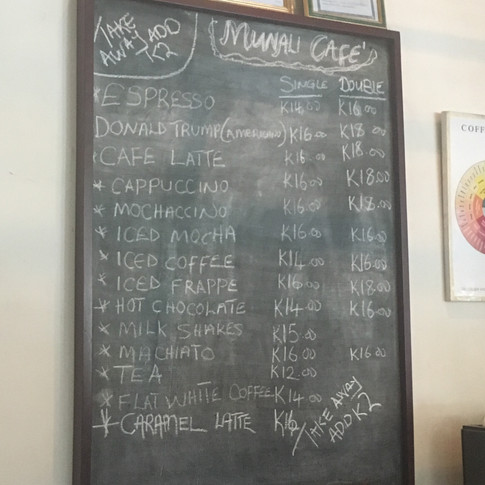 TAKE AWAY ADD K2
MUNALI CAFE'
SINGLE DOUBLE
* ESPRESSO K14.00 K16.00
DONALD TRUMP (AMERICANO) K16.00 K18.00
* CAFE LATTE K16.00 K18.00
* CAPPUCCINO K16.00 K18.00
* MOCHACCINO K16.00 K18.00
* ICED MOCHA K16.00 K16.00
* ICED COFFEE K14.00 K16.00
* ICED FRAPPE K16.00 K18.00
* HOT CHOCOLATE K14.00 K16.00
* MILK SHAKES K15.00
* MACHIATO K16.00 K16.00
* TEA K12.00
* FLAT WHITE COFFEE K14.00
* CARAMEL LATTE K16
TAKE AWAY ADD K2
COFF